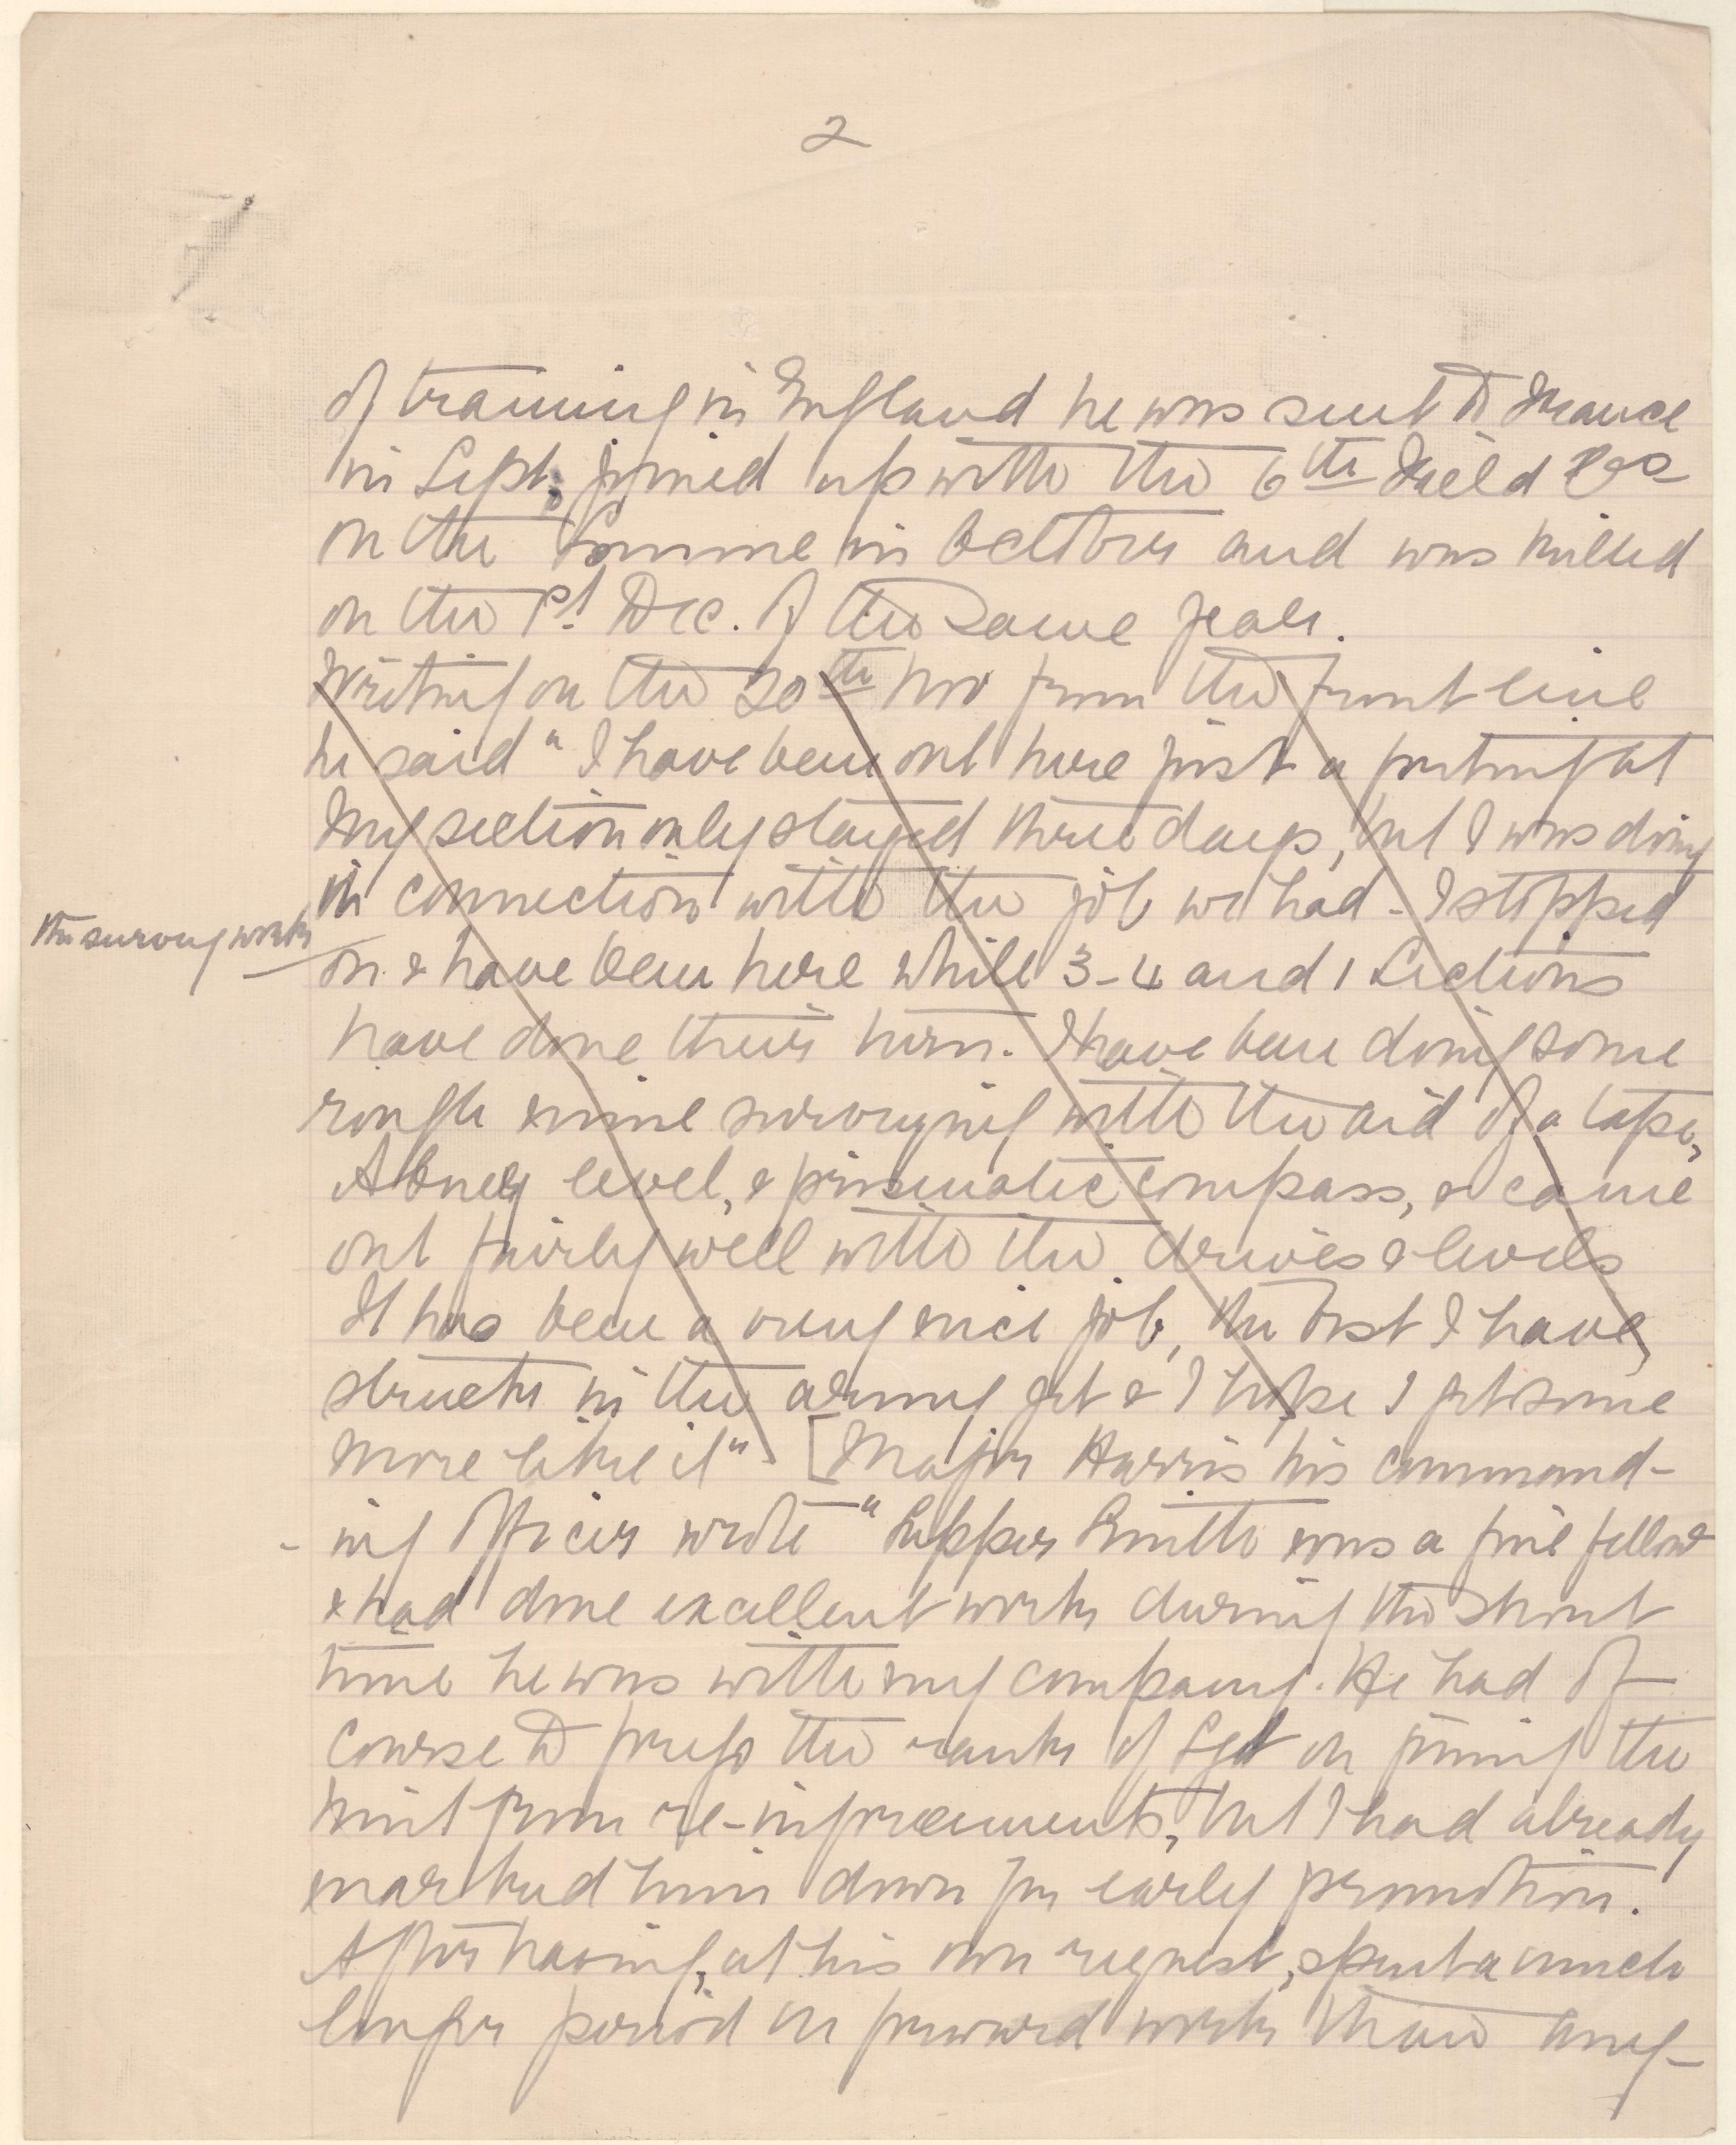 2
of training in England he was sent to France
in Sept; joined up with the 6th Field Coo
on the Somme in October and was killed
on the 1st Dec. of the same year.
Writing on the 20th Nov from the front line
he said " I have been out here just a fortnight
My section only stayed three days, but I was doing
in connection with the job we had - I stopped
the survey work
on & have been here while 3-4 and 1 Sections
have done their turn. I have been doing some
rough mine surveying with the aid of a tape,
Abney level, & prismatic compass, & came
out fairly well with the drives & levels
It has been a very nice job, the best I have
struck in the army yet & I hope I get some
more like it" [Major Harris his command-
- ing Officer wrote "Sapper Smith was a fine fellow
& had done excellent work during the short
time he was with my company. He had of
course to forego the rank of Sgt on joining the
unit from re-inforcements, but I had already
marked him down for early promotion.
After having, at his own request, spent a much
longer period on forward work than any-